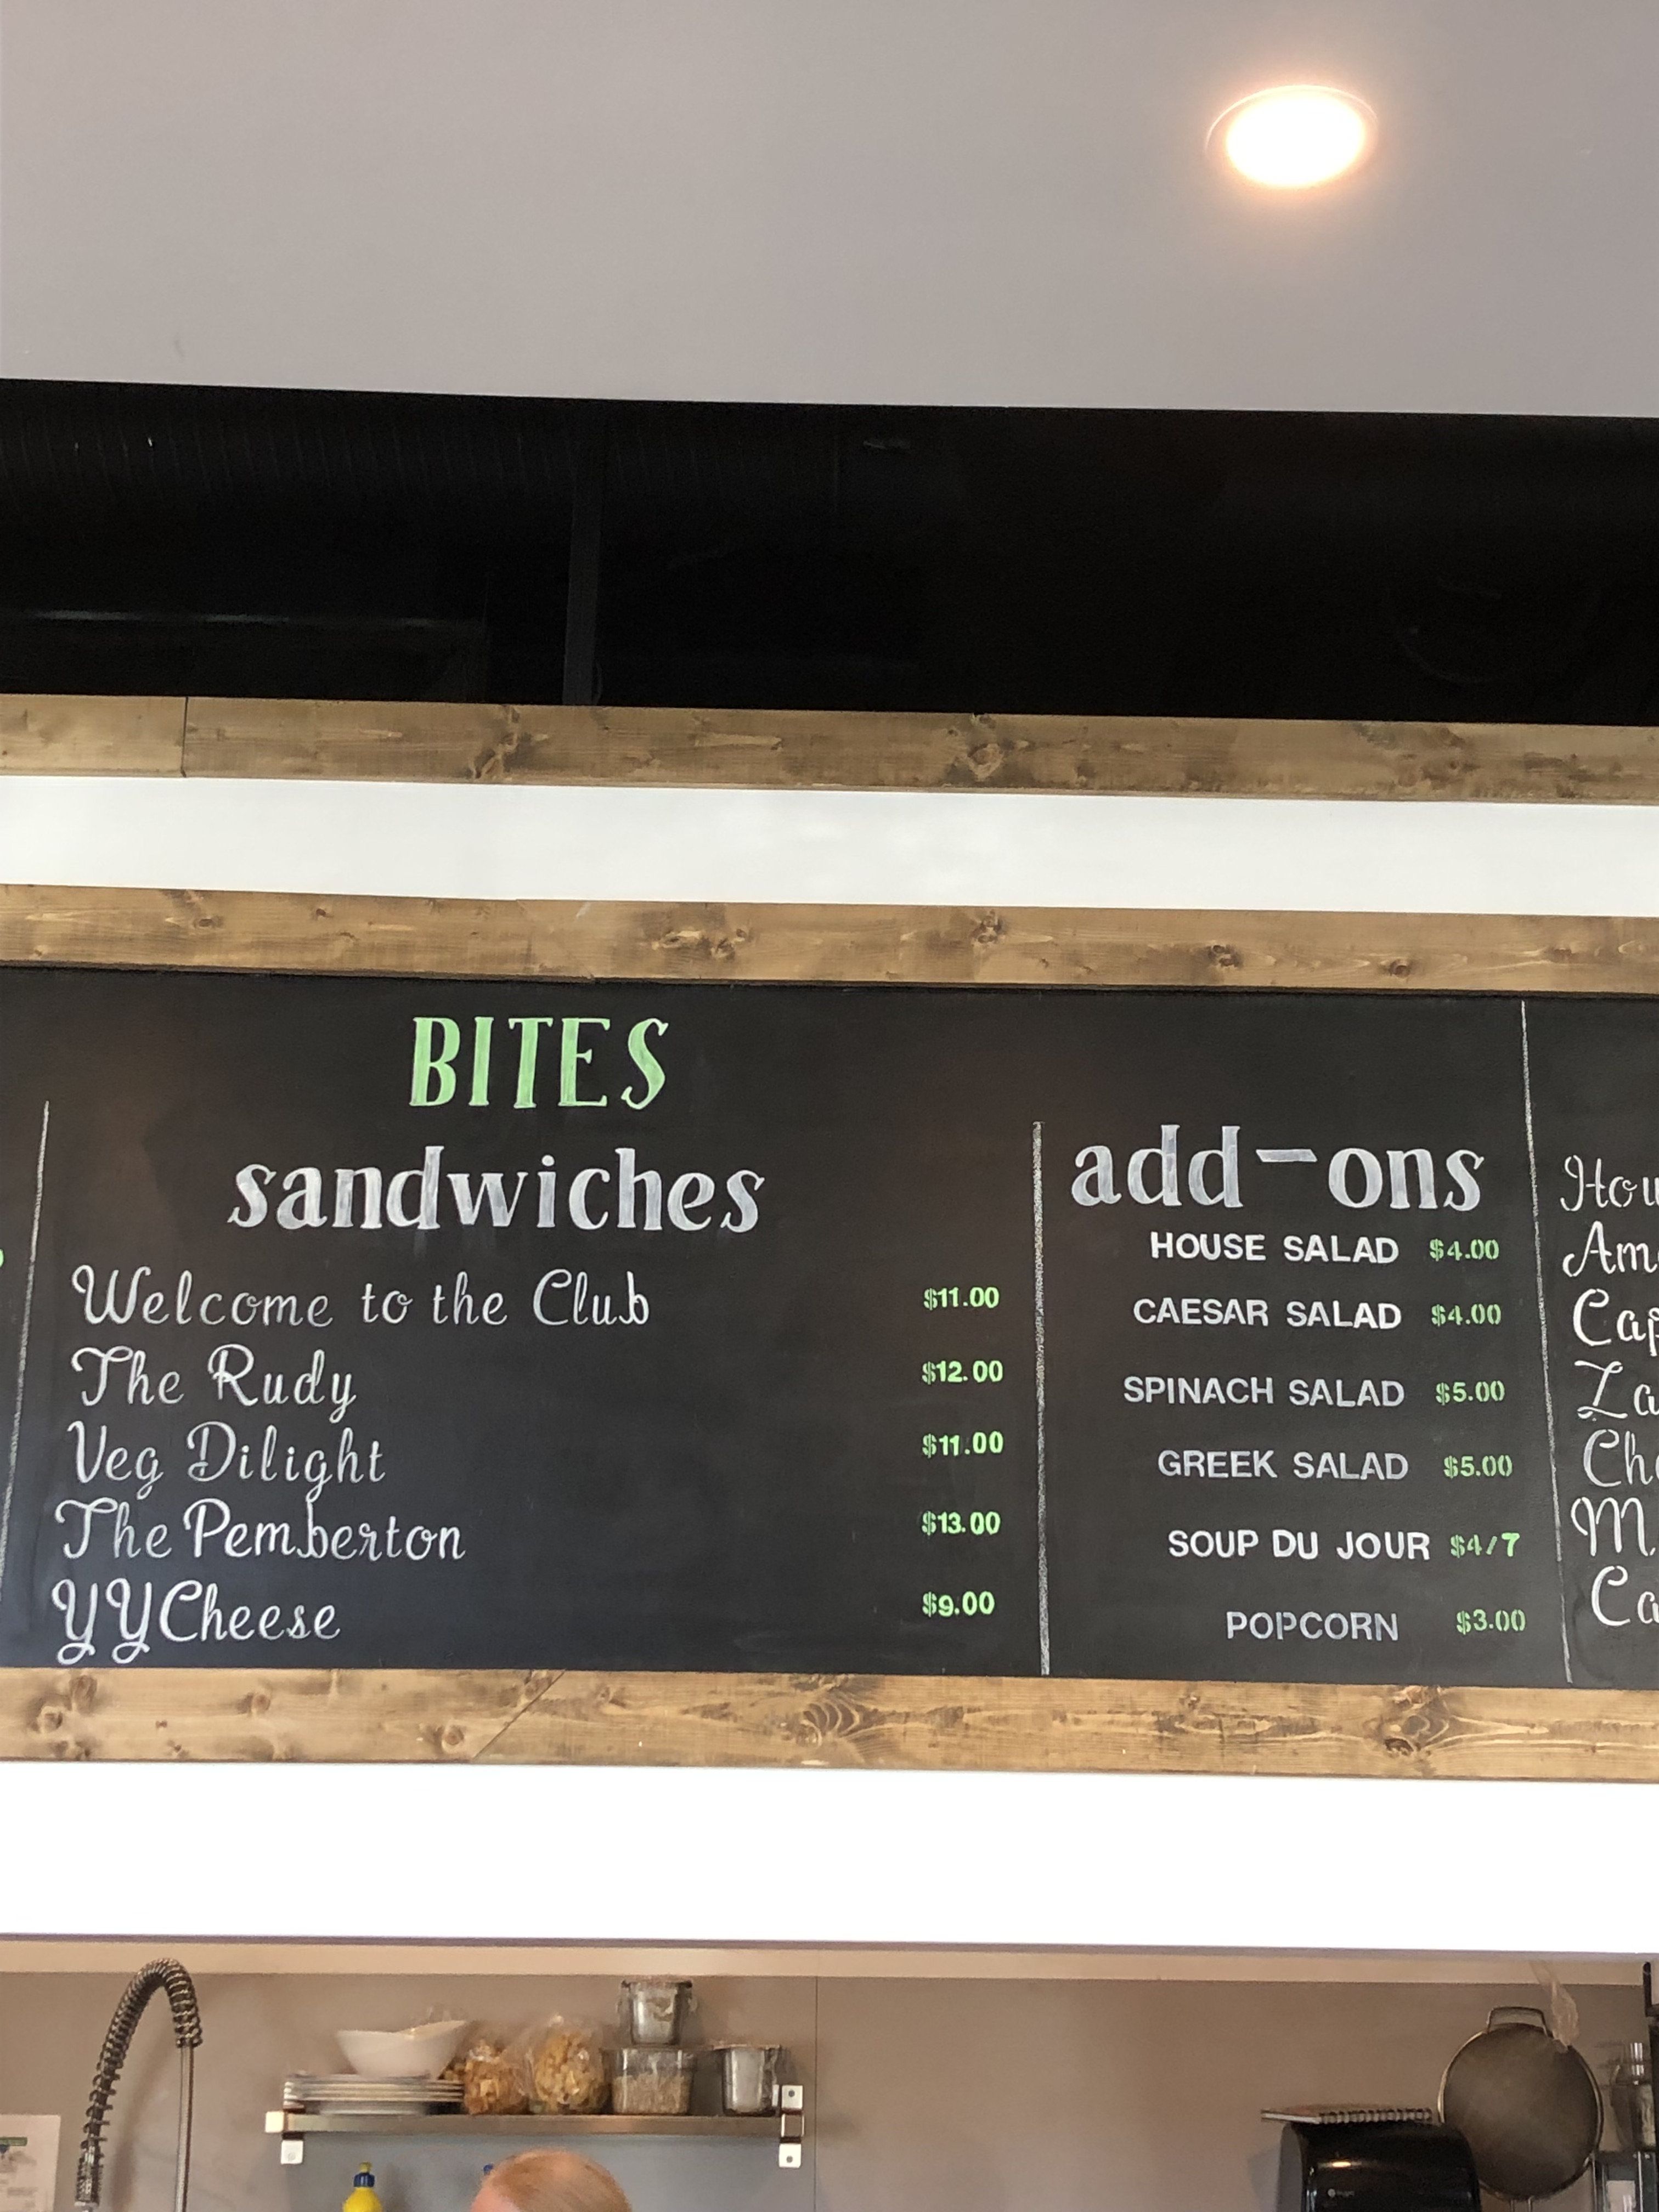 BITES
sandwiches
Welcome to the Club $11.00
The Rudy $12.00
Veg Dilight $11.00
The Pemberton $13.00
YYCheese $9.00
add-ons
HOUSE SALAD $4.00
CAESAR SALAD $4.00
SPINACH SALAD $5.00
GREEK SALAD $5.00
SOUP DU JOUR $4/7
POPCORN $3.00